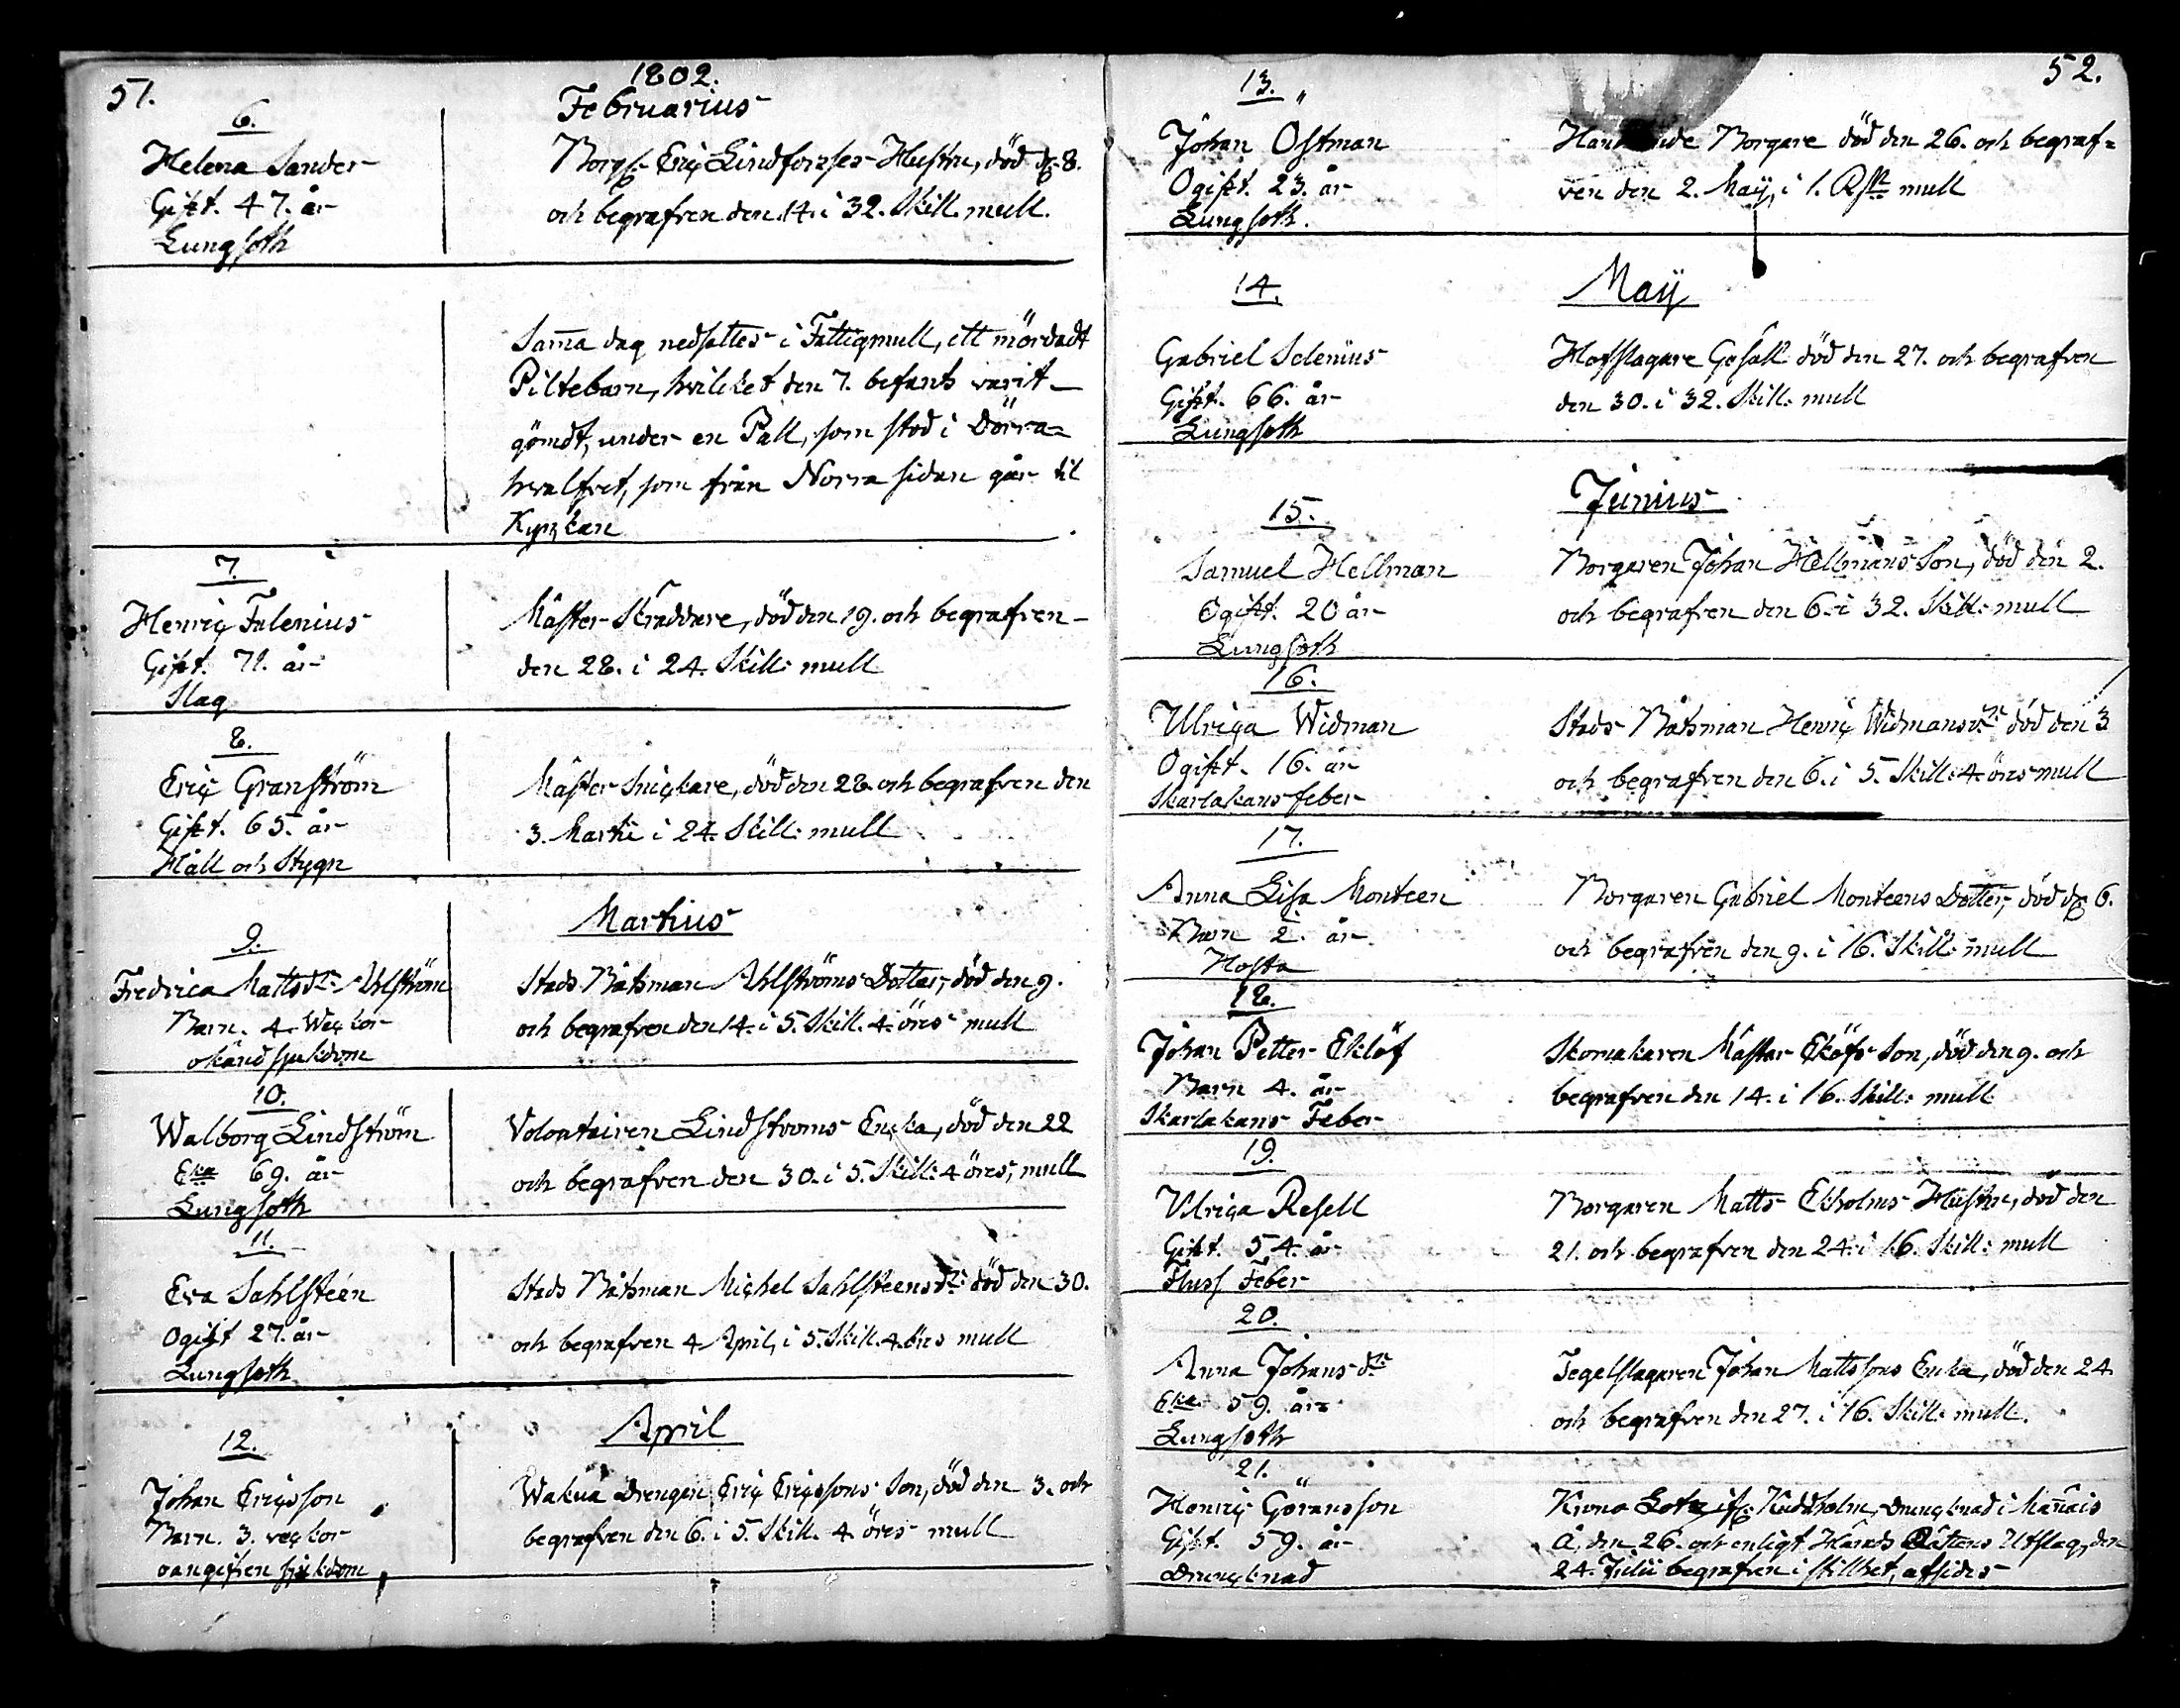 51.
1802.
Februarius
6.
Helena Sander
Gift. 47. år
Lungsoth
Borg: Eric Lindforsses Hustru, död d. 8.
och begrafven den 14. i 32. Skill. mull.
Sam̅a dag nedsattes i Fattigmull, ett mördadt
Piltebarn, hvilcket den 7. befants varit
gömdt, under en Pall, som stod i Dörra=
hvalfvet, som från Norra sidan går til
Kyrckan
7.
Henric Falenius
Gift. 71. år
Slag
Mäster Skräddare, död den 19. och begrafven
den 28. i 24. Skill: mull
8.
Eric Granström
Gift. 65. år
Håll och Stygn
Mäster Snickare, död den 28. och begrafven den
3. Martii i 24. Skill: mull
Martius
9.
Fredrica Matts dr: Ahlström
Barn. 4. Weckor
okänd sjukdom
Stads Båtsman Ahlströms Dotter, död den 9.
och begrafven den 14. i 5. Skill. 4. öres mull
10.
Walborg Lindström
Eka 69. år
Lungsoth
Volontairen Lindstroms Encka, död den 22
och begrafven den 30. i 5. Skill: 4 öres, mull
11.
Eva Sahlsteén
Ogift 27. år
Lungsoth
Stads Båtsman Michel Sahlsteens dr: död den 30.
och begrafven 4 April, i 5. Skill. 4. öres mull
April
12.
Johan Ericsson
Barn. 3. veckor
oangifven sjukdom
Drengen Eric Ericssons Son, död den 3. och
begrafven den 6. i 5. Skill. 4. öres mull
52.
13.
Johan Östman
Ogift. 23. år
Lungsoth.
Borgare död den 26. och begraf=
ven den 2. Maij, i 1. Rdr mull
Maij
14.
Gabriel Selenius
Gift. 66. år
Lungsoth
Hofslagare Gesäll död den 27. och begrafven
den 30. i 32. Skill: mull
Junius
15.
Samuel Hellman
Ogift. 20 år
Lungsoth
Borgaren Johan Hellmans Son, död den 2.
och begrafven den 6. i 32. Skill: mull
16.
Ulrica Widman
Ogift. 16. år
Skarlakans feber
Stads Båtsman Henric Widmans dr: död den 3
och begrafven den 6. i 5. Skill: 4. öres mull
17.
Anna Lisa Monteen
Barn 2. år
Hosta
Borgaren Gabriel Monteens Dotter, död d. 6.
och begrafven den 9. i 16. Skill: mull
18.
Johan Petter Eklöf
Barn 4. år
Skarlakans Feber
Skomakaren Mäster Eklöfs Son, död den 9. och
begrafven den 14. i 16. Skill: mull
19.
Ulrica Resell
Gift. 54. år
Fluss Feber
Borgaren Matts Ekholms Hustru, död den
21. och begrafven den 24. i 16. Skill: mull
20.
Anna Johans dr
Eka 59. år
Lungsoth
Tegelslagaren Johan Mattssons Encka, död den 24.
och begrafven den 27. i 16. Skill: mull.
21.
Henric Göransson
Gift. 59. år
Drunknad
Krono Lots if: Kuddholm, drunknad i
Å, den 26. och enligt Härads Rättens Utslag, den
24. Julii begrafven i stillhet, afsides